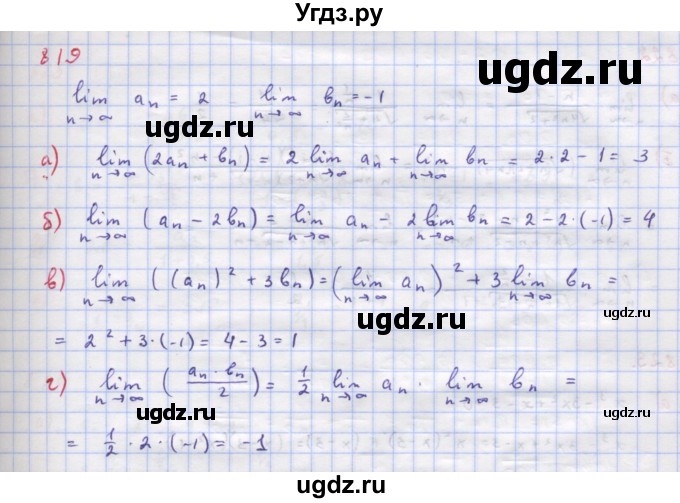 Угдз.ру
819
lim n→∞ aₙ = 2 lim n→∞ bₙ = -1
ugdz.ru ugdz.ru
а) lim n→∞ (2aₙ + bₙ) = 2 lim n→∞ aₙ + lim n→∞ bₙ = 2·2 - 1 = 3
ugdz.ru
б) lim n→∞ (aₙ - 2bₙ) = lim n→∞ aₙ - 2 lim n→∞ bₙ = 2 - 2·(-1) = 4
ugdz.ru ugdz.ru
в) lim n→∞ ((aₙ)² + 3bₙ) = (lim n→∞ aₙ)² + 3 lim n→∞ bₙ =
ugdz.ru
= 2² + 3·(-1) = 4 - 3 = 1
г) lim n→∞ (aₙ·bₙ/2) = 1/2 lim n→∞ aₙ · lim n→∞ bₙ =
ugdz.ru ugdz.ru
= 1/2 · 2 · (-1) = -1
ugdz.ru